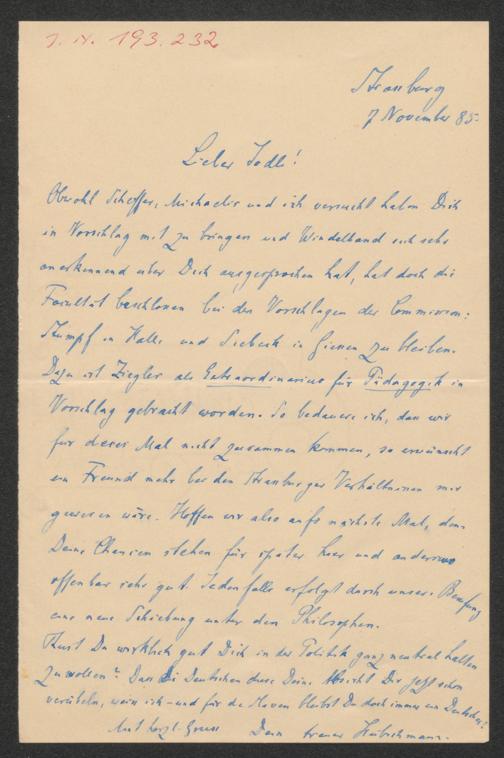 J. N. 193.232
Strassburg
7 November 85
Lieber Jodl!
Obwohl Scheffer, Michaelis und ich versucht haben Dich
in Vorschlag mit zu bringen und Windelband sich sehr
anerkennend über Dich ausgesprochen hat, hat doch die
Facultät beschlossen bei den Vorschlägen der Commission:
Stumpf in Halle und Siebeck in Giessen zu bleiben.
Dazu ist Ziegler als Extraordinarius für Pädagogik in
Vorschlag gebracht worden. So bedauere ich, dass wir
für dieses Mal nicht zusammen kommen, so erwünscht
ein Freund mehr bei den Strassburger Verhältnissen mir
gewesen wäre. Hoffen wir also aufs nächste Mal, denn
Deine Chancen stehen für später hier und anderswo
offenbar sehr gut. Jedenfalls erfolgt durch unsere Berufung
eine neue Schiebung unter den Philosophen.
Thust Du wirklich gut Dich in der Politik ganz neutral halten
zu wollen? Dass die Deutschen diese Deine Absicht Dir jetzt schon
verübeln, weiss ich – und für die Slaven bleibst Du doch immer ein Deutscher!
Mit herzl. Gruss Dein treuer Hübschmann.